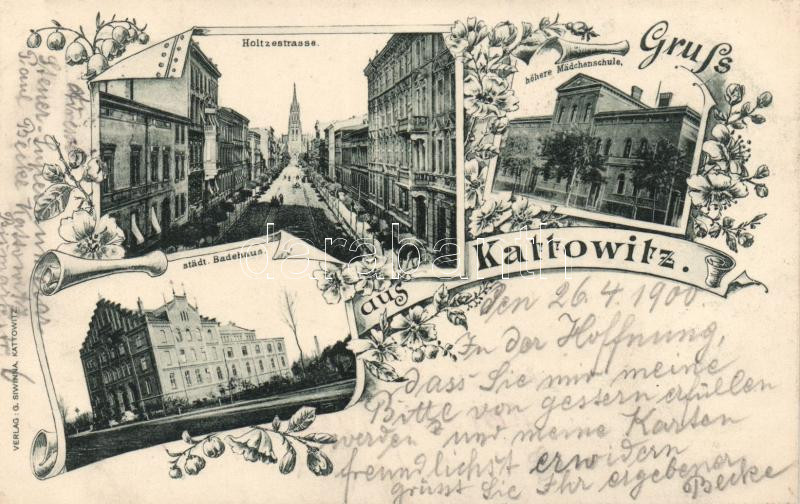 Gruß
aus Kattowitz.
Holtzestrasse.
höhere Mädchenschule.
städt. Badehaus.
VERLAG: G. SIWINNA, KATTOWITZ
den 26.4.1900
In der Hoffnung,
dass Sie mir meine
Bitte von gestern erfüllen
werden und meine Karten
freundlichst erwidern
grüsst Sie Ihr ergebener
Becke
Paul Becke
darabanth.com